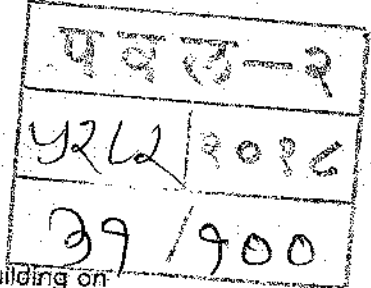 पवल-२
५२८२ २०१८
३१/१००
ilding on